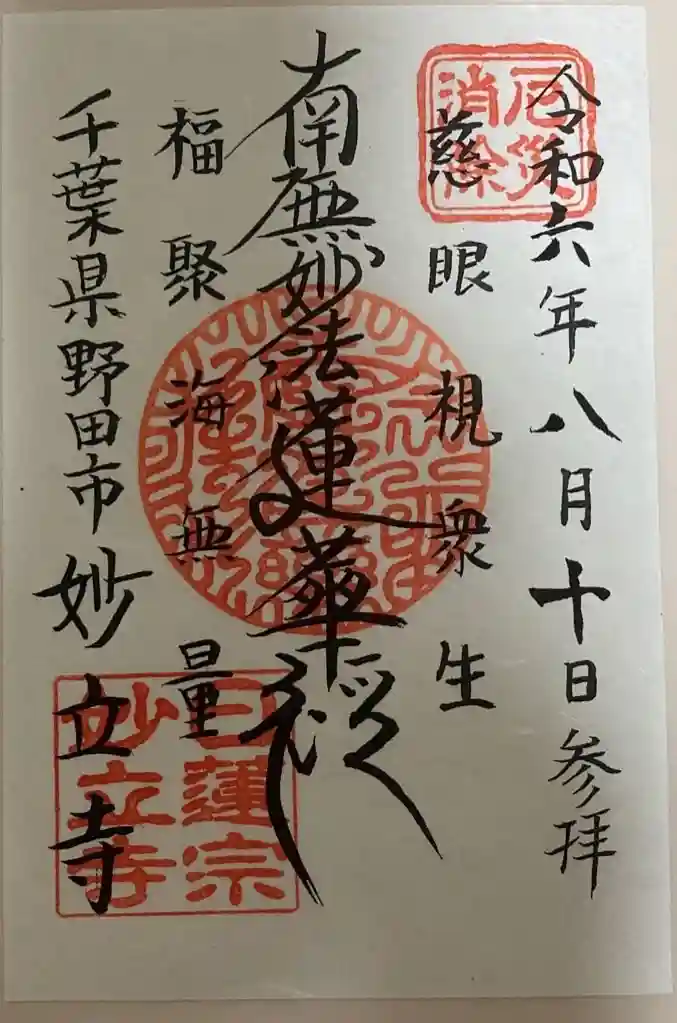 令和六年八月十日参拝
厄災
消除
慈眼視衆生
南無妙法蓮華経
福聚海無量
千葉県野田市妙立寺
日蓮宗
妙立寺